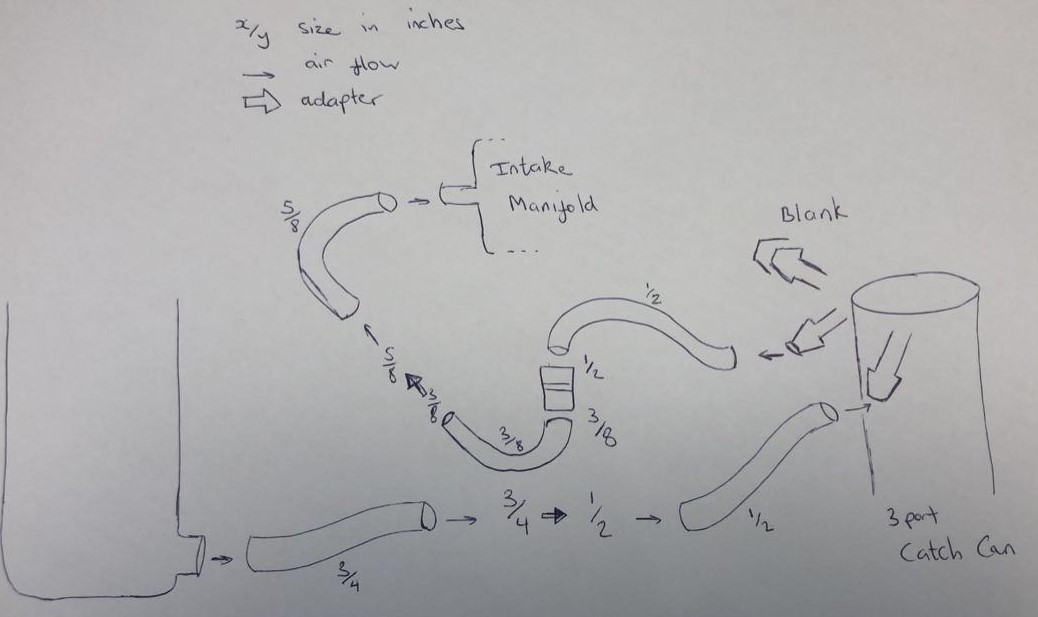 x/y size in inches
→ air flow
⇨ adapter
Intake
Manifold
5/8
Blank
1/2
1/2
5/8
3/8
3/8
3/8
3/4 → 1/2
1/2
3/4
3 port
Catch Can